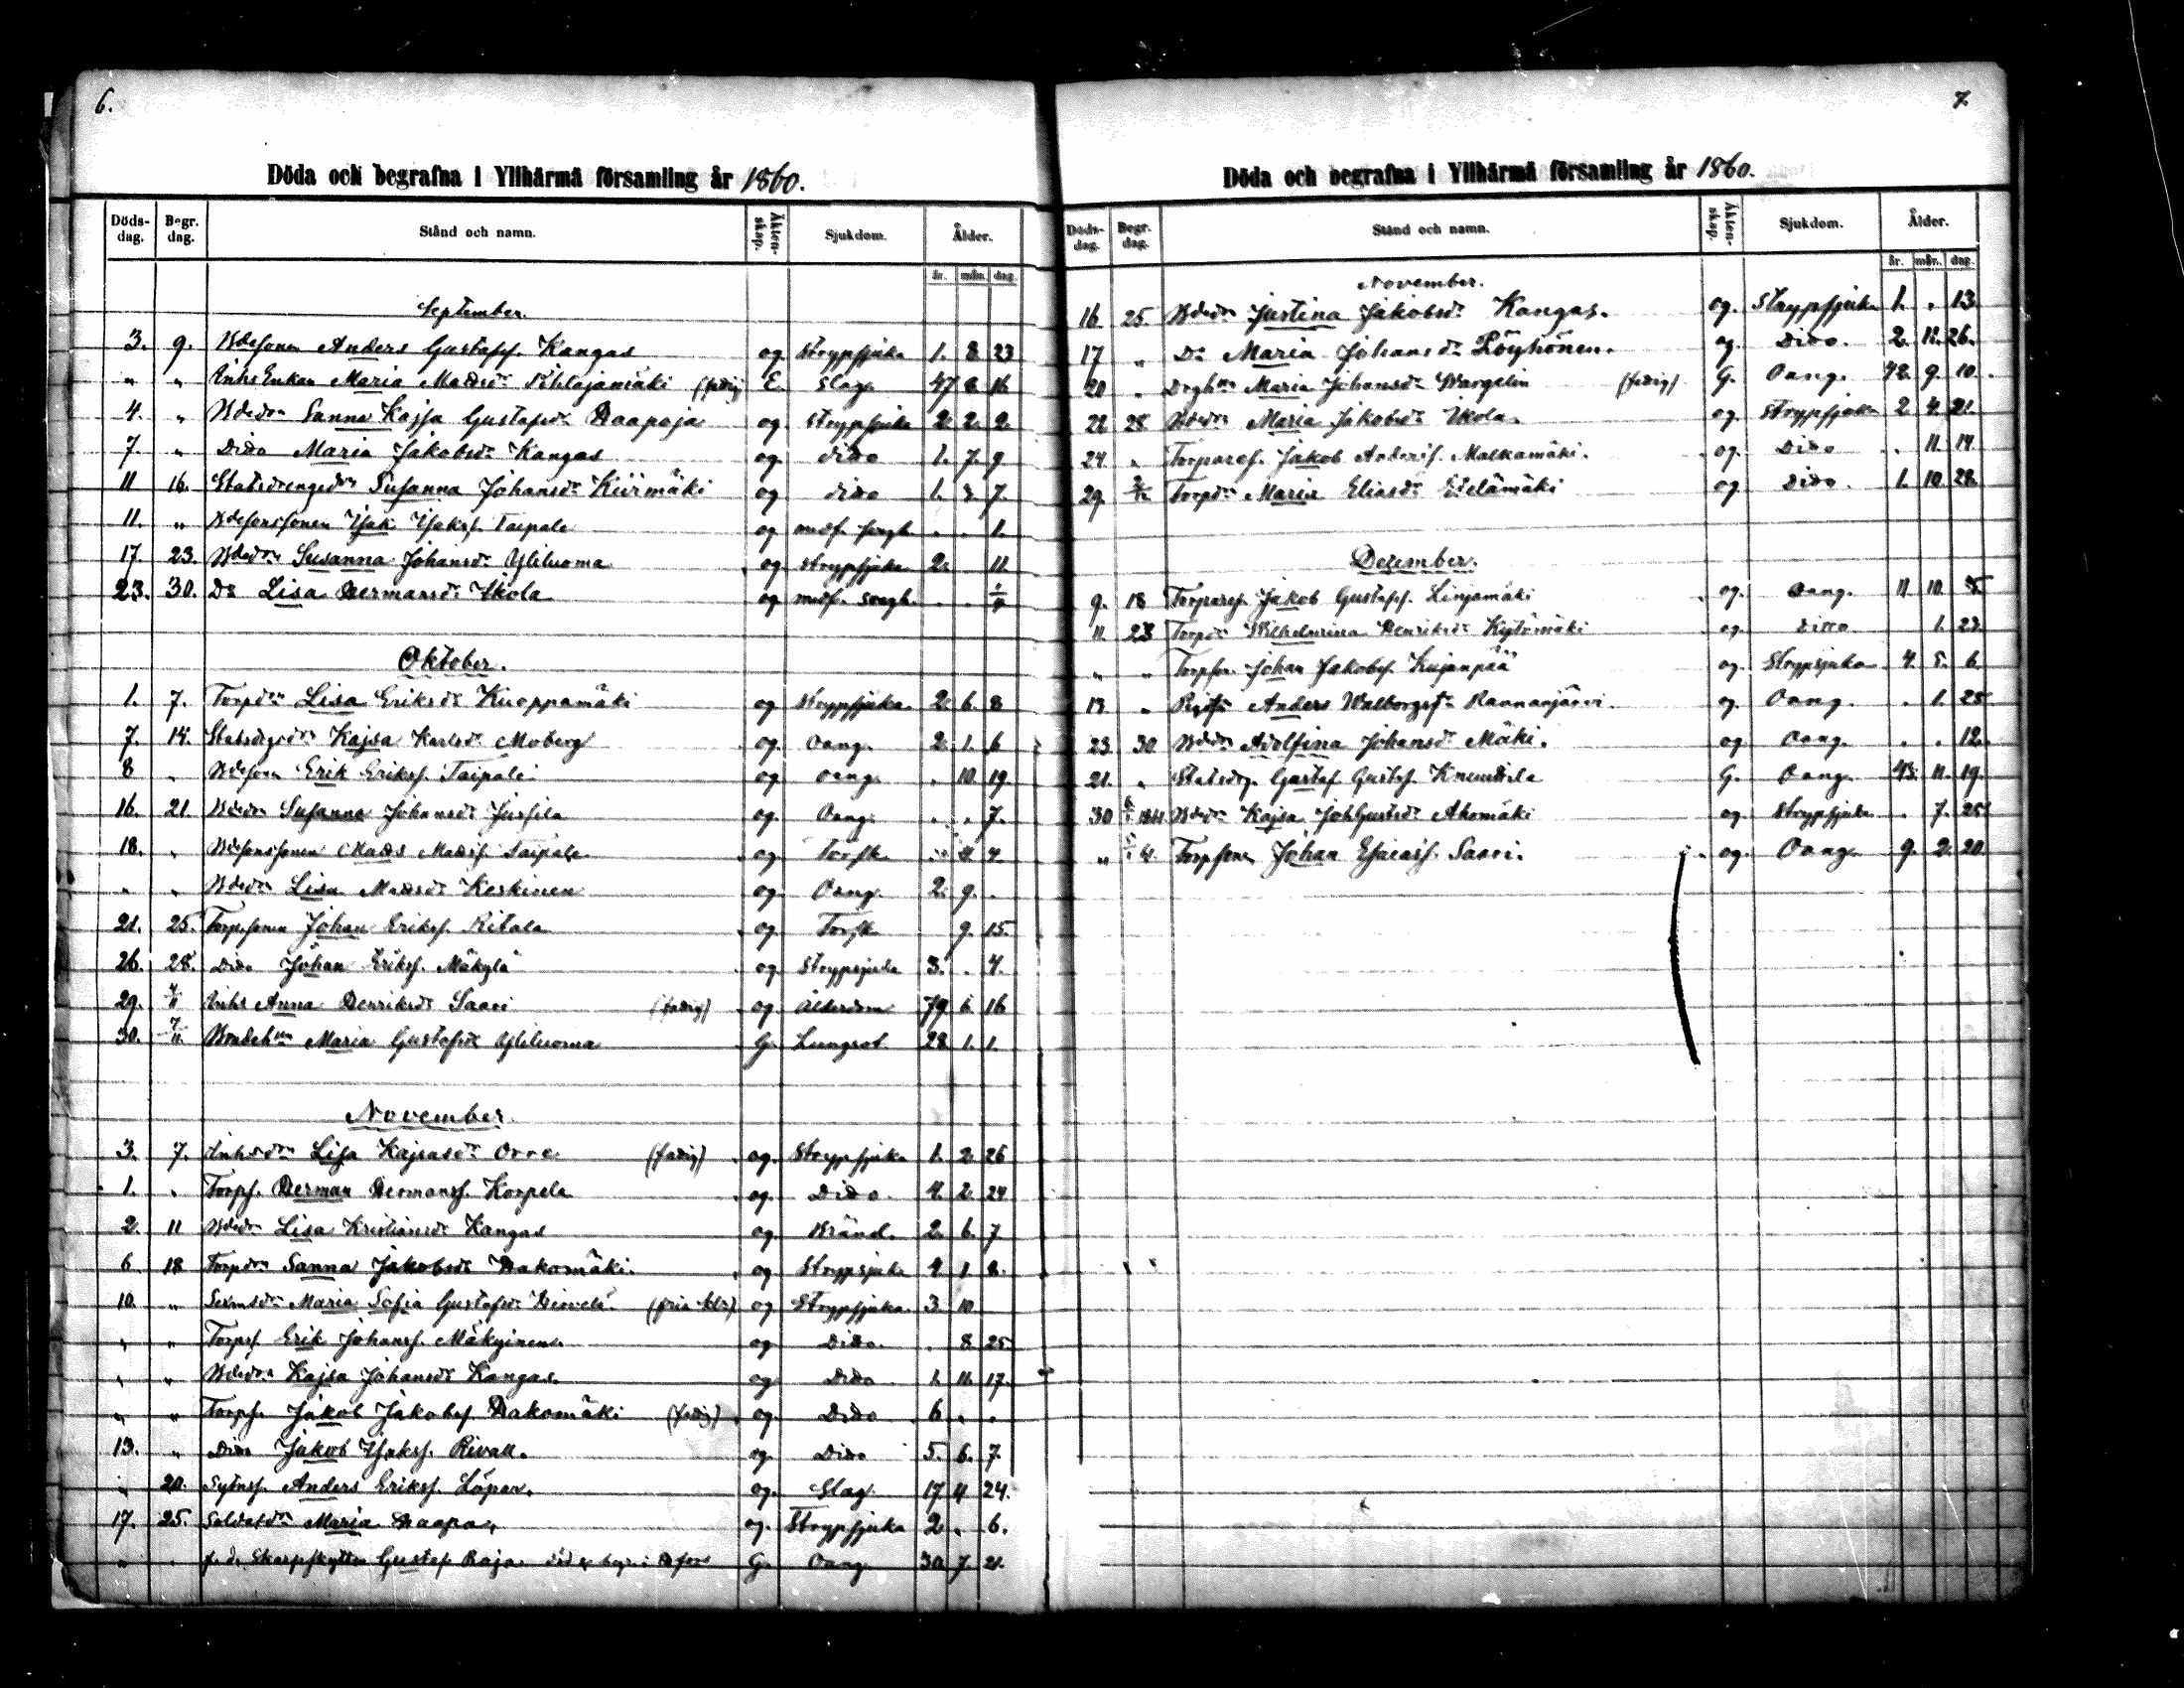 6.
Döda och begrafna i Ylihärmä församling år 1860.
Döds-dag. Begr. dag. Stånd och namn. Äkten-skap. Sjukdom. Ålder.
år. mån. dag.
September.
3. 9. Bdesonen Anders Gustafss. Kangas og strypsjuka 1. 8. 23
" " Inhs Enkan Maria Mattsdr Pihlajamäki (fattig) E. Slag 47 8 16
4. " Bdedrn Sanna Kajsa Gustafsdr Haapoja og strypsjuka 2. 2. 2.
7. " Ditto Maria Jakobsdr Kangas og ditto 1. 7. 9
11 16. Statsdrengsdrn Susanna Johansdr Kiirmäki og ditto 1. 7.
11. " Isak Isakss. Taipale og . . 1.
17. 23. Bdedrn Susanna Johansdr Yliluoma og strypsjuka 2. 11
23. 30. Do Lisa Hermansdr Ikola og . .
Oktober.
1. 7. Torpdrn Lisa Eriksdr Kuoppamäki og strypsjuka 2. 6. 8
7. 14. Kajsa Karlsdr Moberg og. Oang. 2. 1. 6
8 " Bdesonen Erik Erikss. Taipale og oang. . 10. 19.
16. 21. Bdedrn Susanna Johansdr Jussila og. Oang. . . 7.
18. " Mats Matss. Taipale og Torsk 4.
" " Bdedrn Lisa Mattsdr Keskinen og. Oang. 2. 9. .
21. 25. Torpsonen Johan Erikss. Ritala og Torsk 9. 15.
26. 28. Ditto Johan Erikss. Mäkylä og. Strypsjuka 3. . 4.
29. 4/11 Inhs Anna Henriksdr Saari (fattig) og Ålderdom 79 6 16
30. 7/11. Maria Gustafsdr Yliluoma G. Lungsot. 28 1. 1.
November.
3. 7. Inhsdrn Lisa Kajsasdr Orre (fattig) og. Strypsjuka 1. 2 26
1. " Torps. Herman Hermanss. Korpela og. Ditto. 4. 2 24
2. 11 Bdedrn Lisa Kristiansdr Kangas og Bränd. 2. 6. 7
6. 18 Torpdrn Sanna Jakobsdr Hakomäki. og Strypsjuka 4 1 8.
10. " Maria Sofia Gustafsdr og Strypsjuka. 3 10
" " Torps. Erik Johanss. Mäkyinen. og Ditto. . 8 25
" " Bdedrn Kajsa Johansdr Kangas. og Ditto 1. 11. 17.
" " Torps. Jakob Jakobss. Hakomäki (fattig) og. Ditto 6 . .
13. " Ditto Jakob Isakss. Rivall. og. Ditto 5. 6. 7
" 20. Sytns. Anders Erikss. Löpar. og. Slag 17 11 24.
17. 25. Soldatdrn Maria Haapa. og. Strypsjuka 2 . 6.
" " f.d. Skarpskytten Gustaf Raja. G. Oang 30 7. 21.
7.
Döda och begrafna i Ylihärmä församling år 1860.
Döds-dag. Begr. dag. Stånd och namn. Äkten-skap. Sjukdom. Ålder.
år. mån. dag.
November.
16 25. Bdedrn Justina Jakobsdr Kangas. og. Strypsjuka 1. . 13.
17 " Do Maria Johansdr Pöyhönen. og. Ditto. 2. 11. 26.
20 " Maria Johansdr Wargelin (fattig) G. Oang. 42. 9. 10.
22 28 Bdedrn Maria Jakobsdr Ikola. og. Strypsjuka 2 4. 21.
24. " Torpares. Jakob Anderss. Malkamäki. og. Ditto . 11. 14.
29. 2/12 Torpdrn Maria Eliasdr Etelämäki og Ditto. 1. 10. 28.
December.
9. 18 Torpares. Jakob Gustafss. Linjamäki og. Oang. 11 10
11. 23 Torpdrn Wilhelmina Henriksdr Kytömäki og. Ditto. 1. 23.
" " Torpson. Johan Jakobss. Kujanpää og. Strypsjuka 4. 5. 6.
19. " Anders Walborgss. Rannanjärvi. og. Oang. . 1. 25
23. 30 Bdedrn Adolfina Johansdr Mäki. og Oang. . . 12.
21. " Statsdrg. Gustaf Gustafss. G. Oang. 43. 11. 19.
30 6/1 1861 Bdedrn Kajsa Joh Gustsdr Ahomäki og Strypsjuka . 7. 25
" Torpsonen Johan Esaiass. Saari. og. Oang. 9. 2. 20